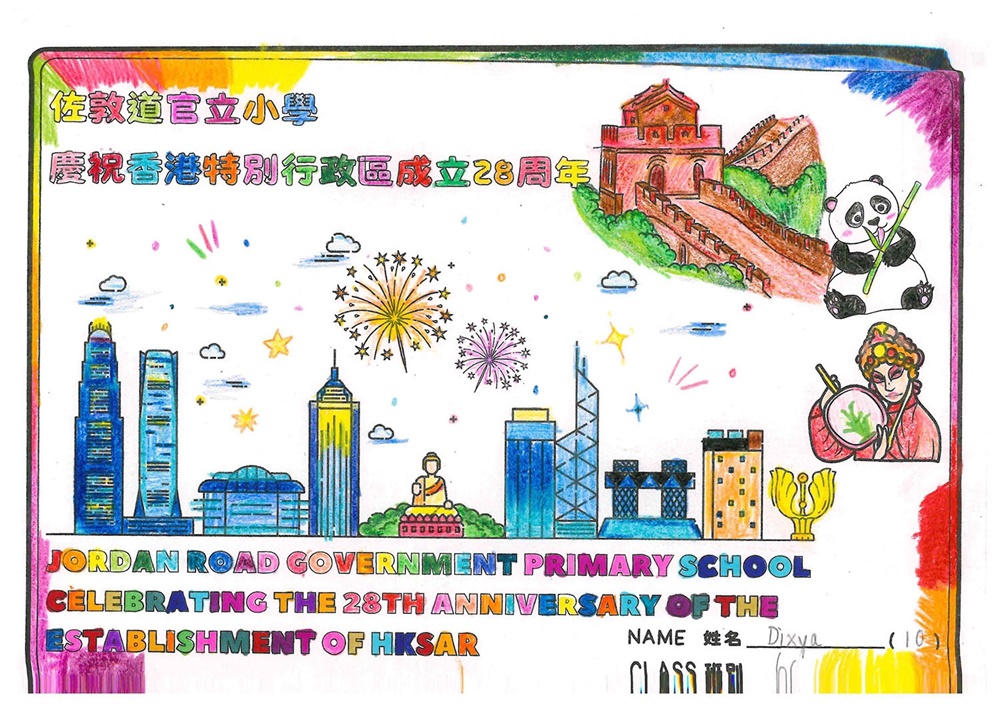 佐敦道官立小學
慶祝香港特別行政區成立28周年
JORDAN ROAD GOVERNMENT PRIMARY SCHOOL
CELEBRATING THE 28TH ANNIVERSARY OF THE
ESTABLISHMENT OF HKSAR
NAME 姓名 Dixya (10)
CLASS 班別